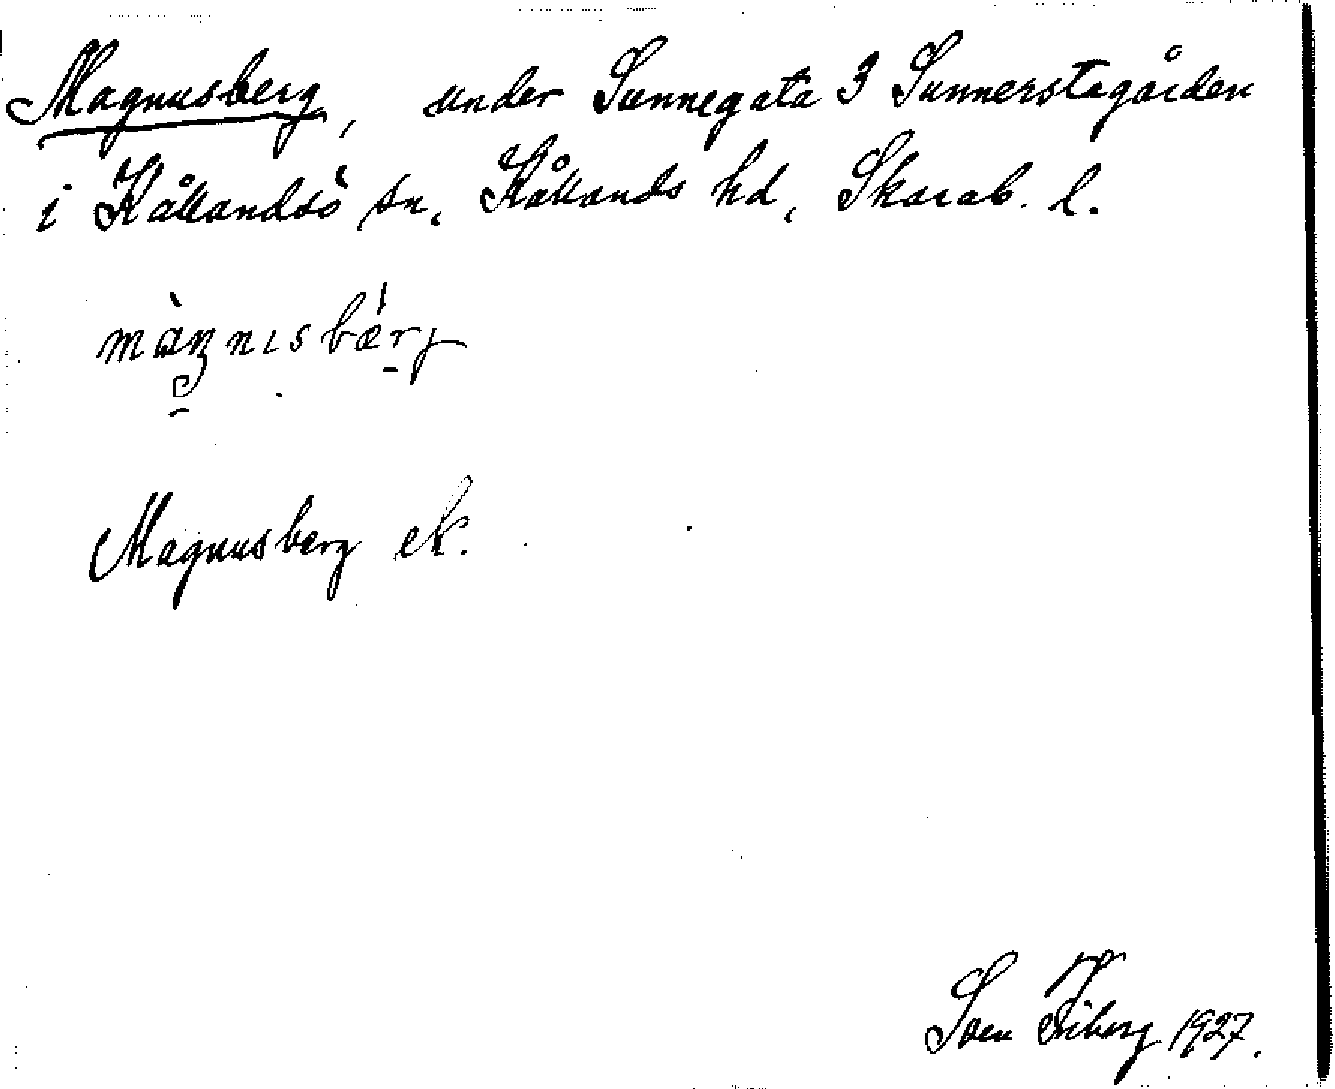 Magnusberg, under Sunnegata 3 Sunnerstagården
i Kållandsö sn, Kållands hd, Skarab. l.
màŋnɩsbǽrj
Magnusberg ek.
Sven Friberg 1927.